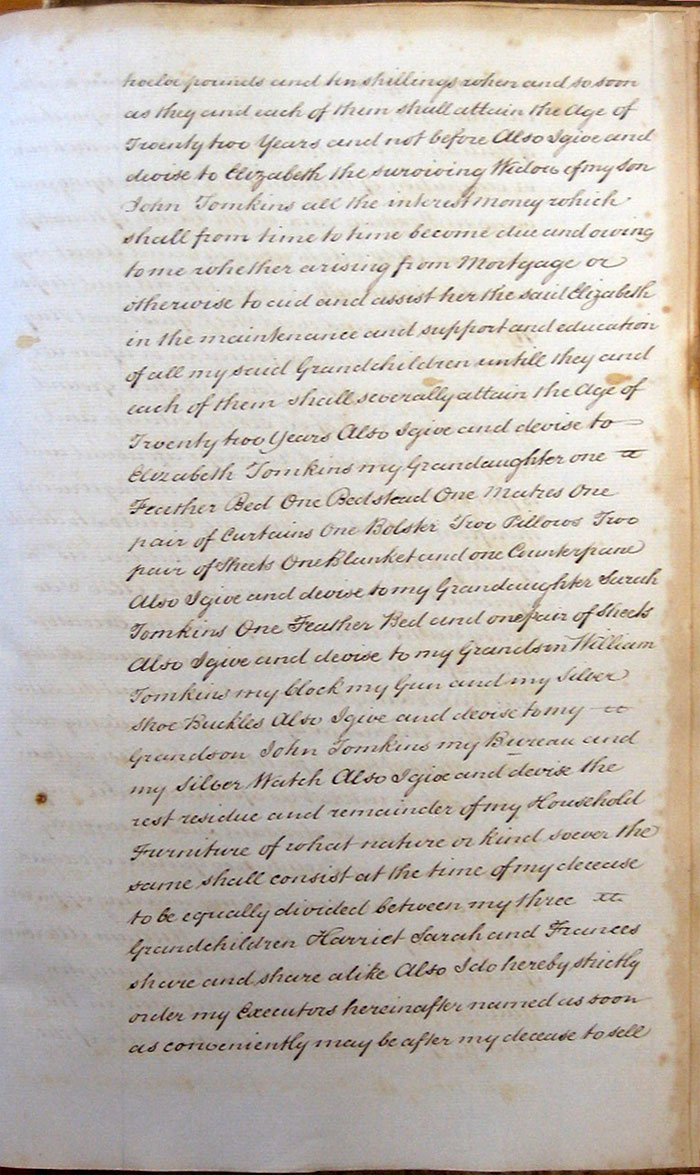 twelve pounds and ten shillings when and so soon
as they and each of them shall attain the Age of
Twenty two Years and not before Also I give and
devise to Elizabeth the surviving Widow of my Son
John Tomkins all the interest money which
shall from time to time become due and owing
to me whether arising from Mortgage or
otherwise to aid and assist her the said Elizabeth
in the maintenance and support and education
of all my said Grandchildren untill they and
each of them shall severally attain the Age of
Twenty two Years Also I give and devise to
Elizabeth Tomkins my Grandaughter one a
Feather Bed One Bedstead One Matres One
pair of Curtains One Bolster Two Pillows Two
pair of Sheets One Blanket and one Counterpane
Also I give and devise to my Grandaughter Sarah
Tomkins One Feather Bed and one pair of Sheets
Also I give and devise to my Grandson William
Tomkins my Clock my Gun and my Silver
Shoe Buckles Also I give and devise to my
Grandson John Tomkins my Bureau and
my Silver Watch Also I give and devise the
rest residue and remainder of my Household
Furniture of what nature or kind soever the
same shall consist at the time of my decease
to be equally divided between my three
Grandchildren Harriet Sarah and Frances
share and share alike Also I do hereby strictly
order my Executors hereinafter named as soon
as conveniently may be after my decease to sell